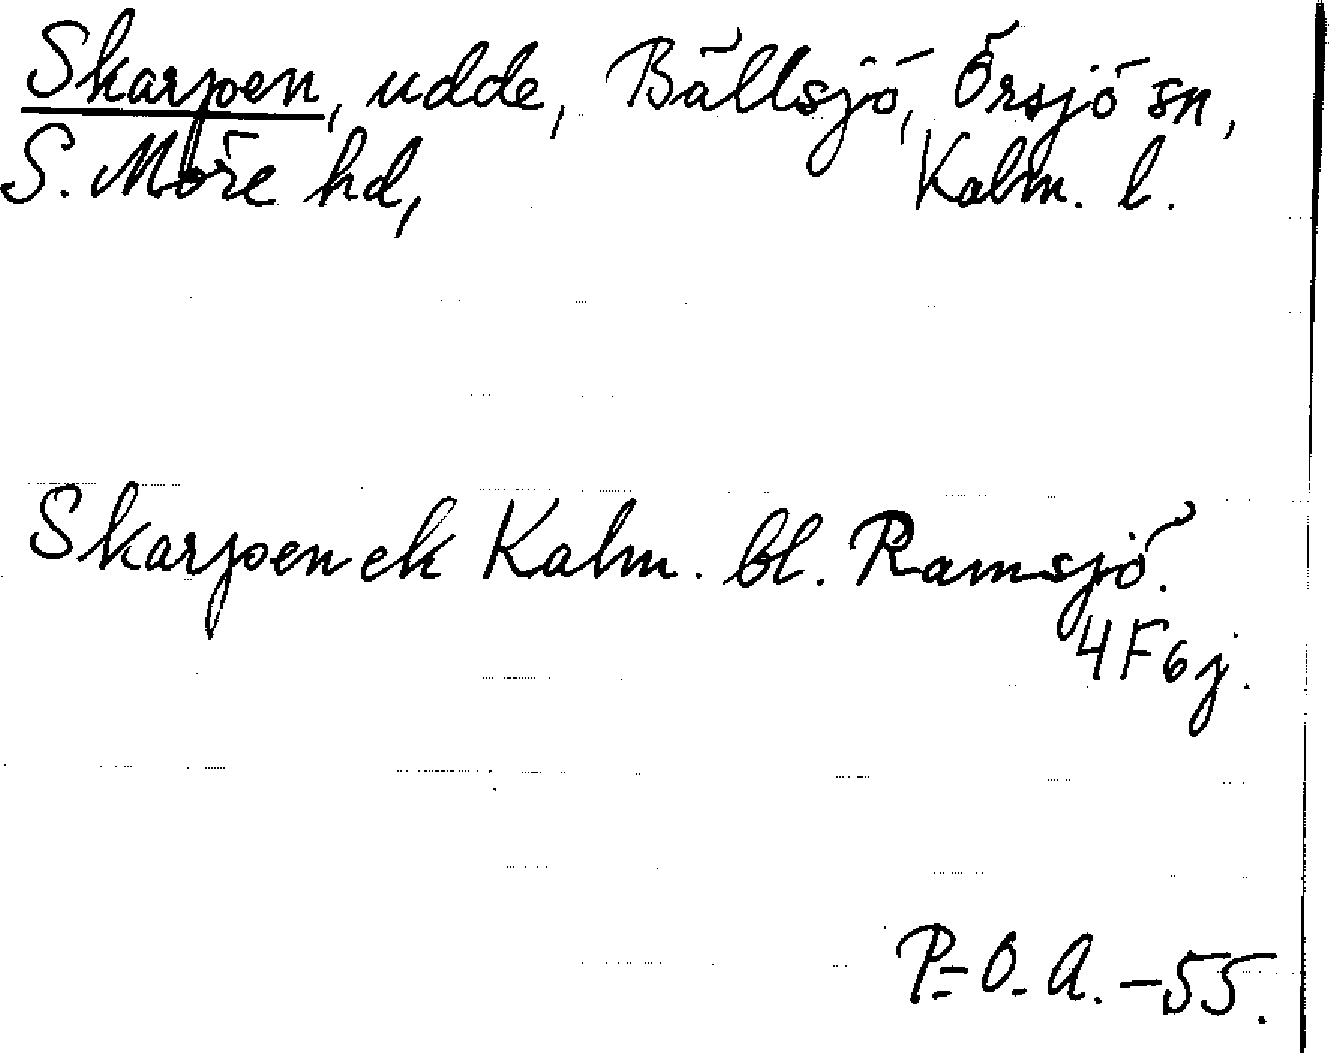 Skarpen, udde, Bällsjö, Örsjö sn,
S. Möre hd, Kalm. l.
Skarpen ek Kalm. bl. Ramsjö.
4F6j.
P.-O. A. -55.